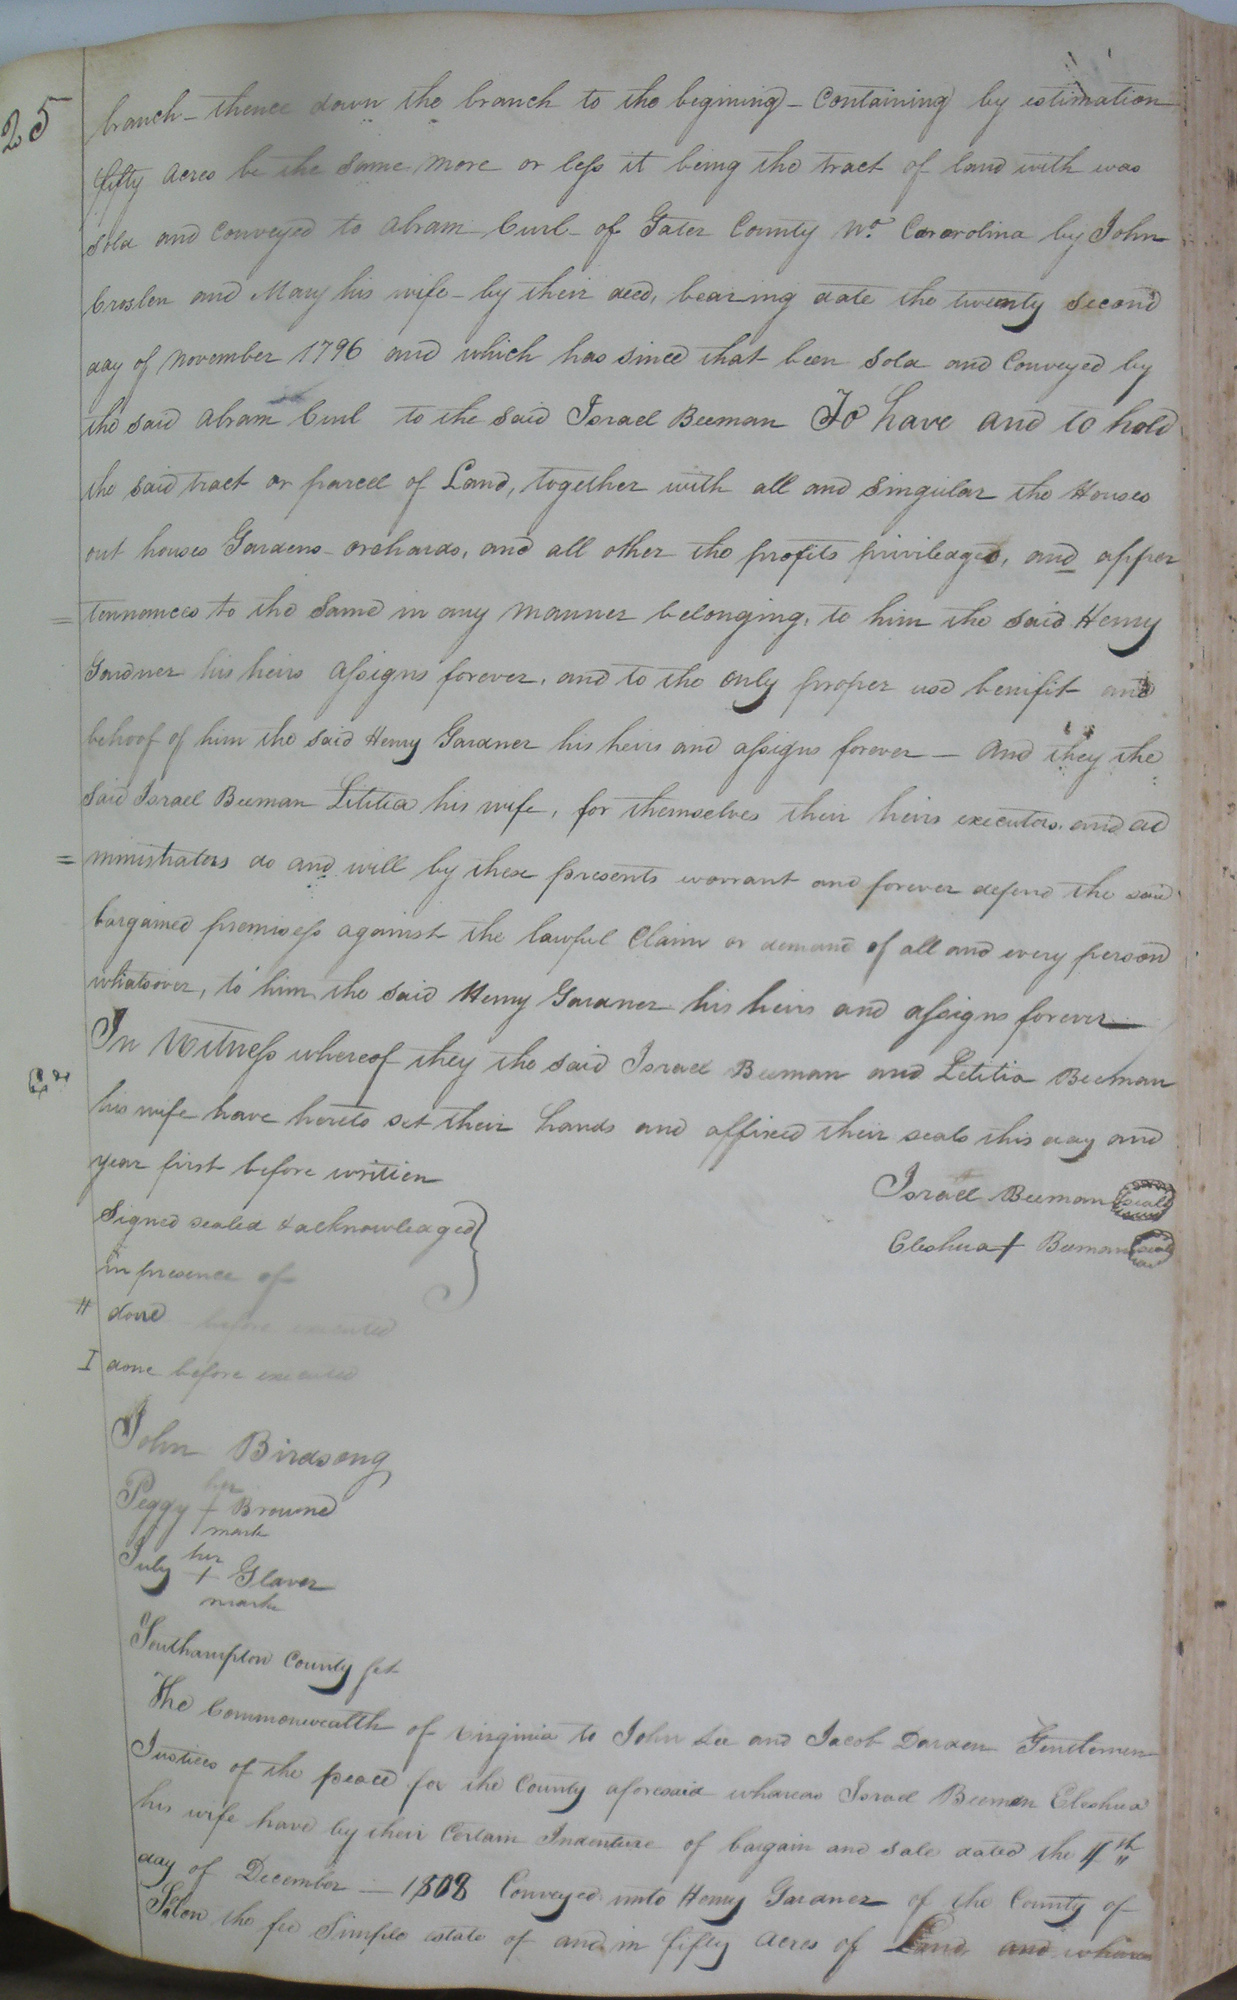 25
branch - thence down the branch to the begining - Containing by estimation
fifty acres be the same more or less it being the tract of land with was
sold and conveyed to Abram Curl of Gates County No. Cararolina by John
Croslen and Mary his wife - by their deed, bearing date the twenty second
day of November 1796 and which has since that been sold and Conveyed by
the said Abram Curl to the said Israel Beeman To have and to hold
the said tract or parcel of Land, together with all and singular the Houses
out houses Gardens orchards, and all other the profits priviledges, and apper
= tennances to the same in any manner belonging, to him the said Henry
Gardner his heirs assigns forever, and to the only proper use benifit and
behoof of him the said Henry Gardner his heirs and assigns forever - And they the
said Israel Beeman Letitia his wife, for themselves their heirs executors and ad
= ministrators do and will by these presents warrant and forever defend the said
bargained premisess against the lawful Claim or demand of all and every person
whatsover, to him the said Henry Gardner his heirs and assigns forever
In Witness whereof they the said Israel Beeman and Letitia Beeman
his wife have hereto set their hands and affixed their seals this day and
year first before written
Israel Beeman seal
Signed sealed & acknowledged
Eleshua + Beeman seal
in presence of
# done before executed
I done before executed
John Birdsong
her
Peggy + Browne
mark
her
July + Glaver
mark
Southampton County sct
The Commonwealth of Virginia to John Lee and Jacob Darden Gentlemen
Justices of the peace for the County aforesaid whereas Israel Beeman Eleshua
his wife have by their Certain Indenture of bargain and sale dated the 4th
day of December - 1808 Conveyed unto Henry Gardner of the County of
Soton the fee Simple estate of and in fifty acres of Land and whereas